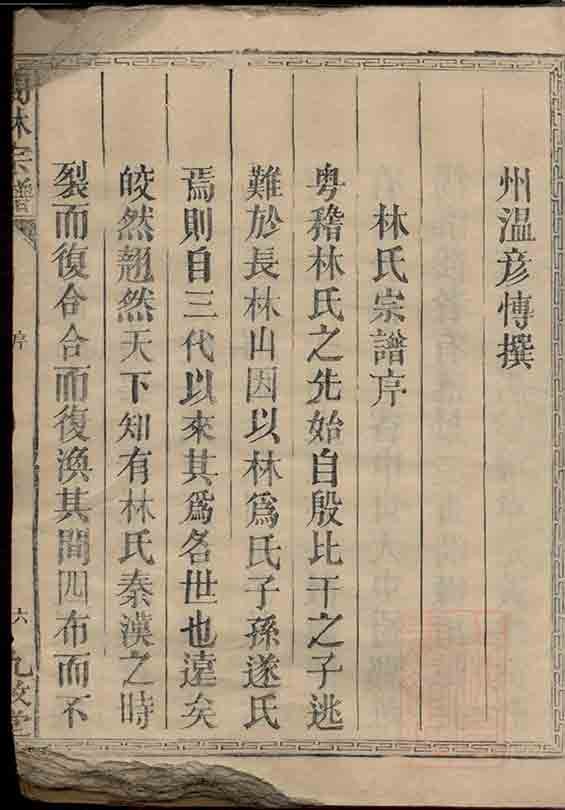 州溫彥愽撰
林氏宗譜序
粤稽林氏之先始自殷比干之子逃
難於長林山因以林爲氏子孫遂氏
焉則自三代以來其爲名世也遠矣
皎然翹然天下知有林氏秦漢之時
裂而復合合而復渙其間四布而不
林宗譜
序
六
九牧堂